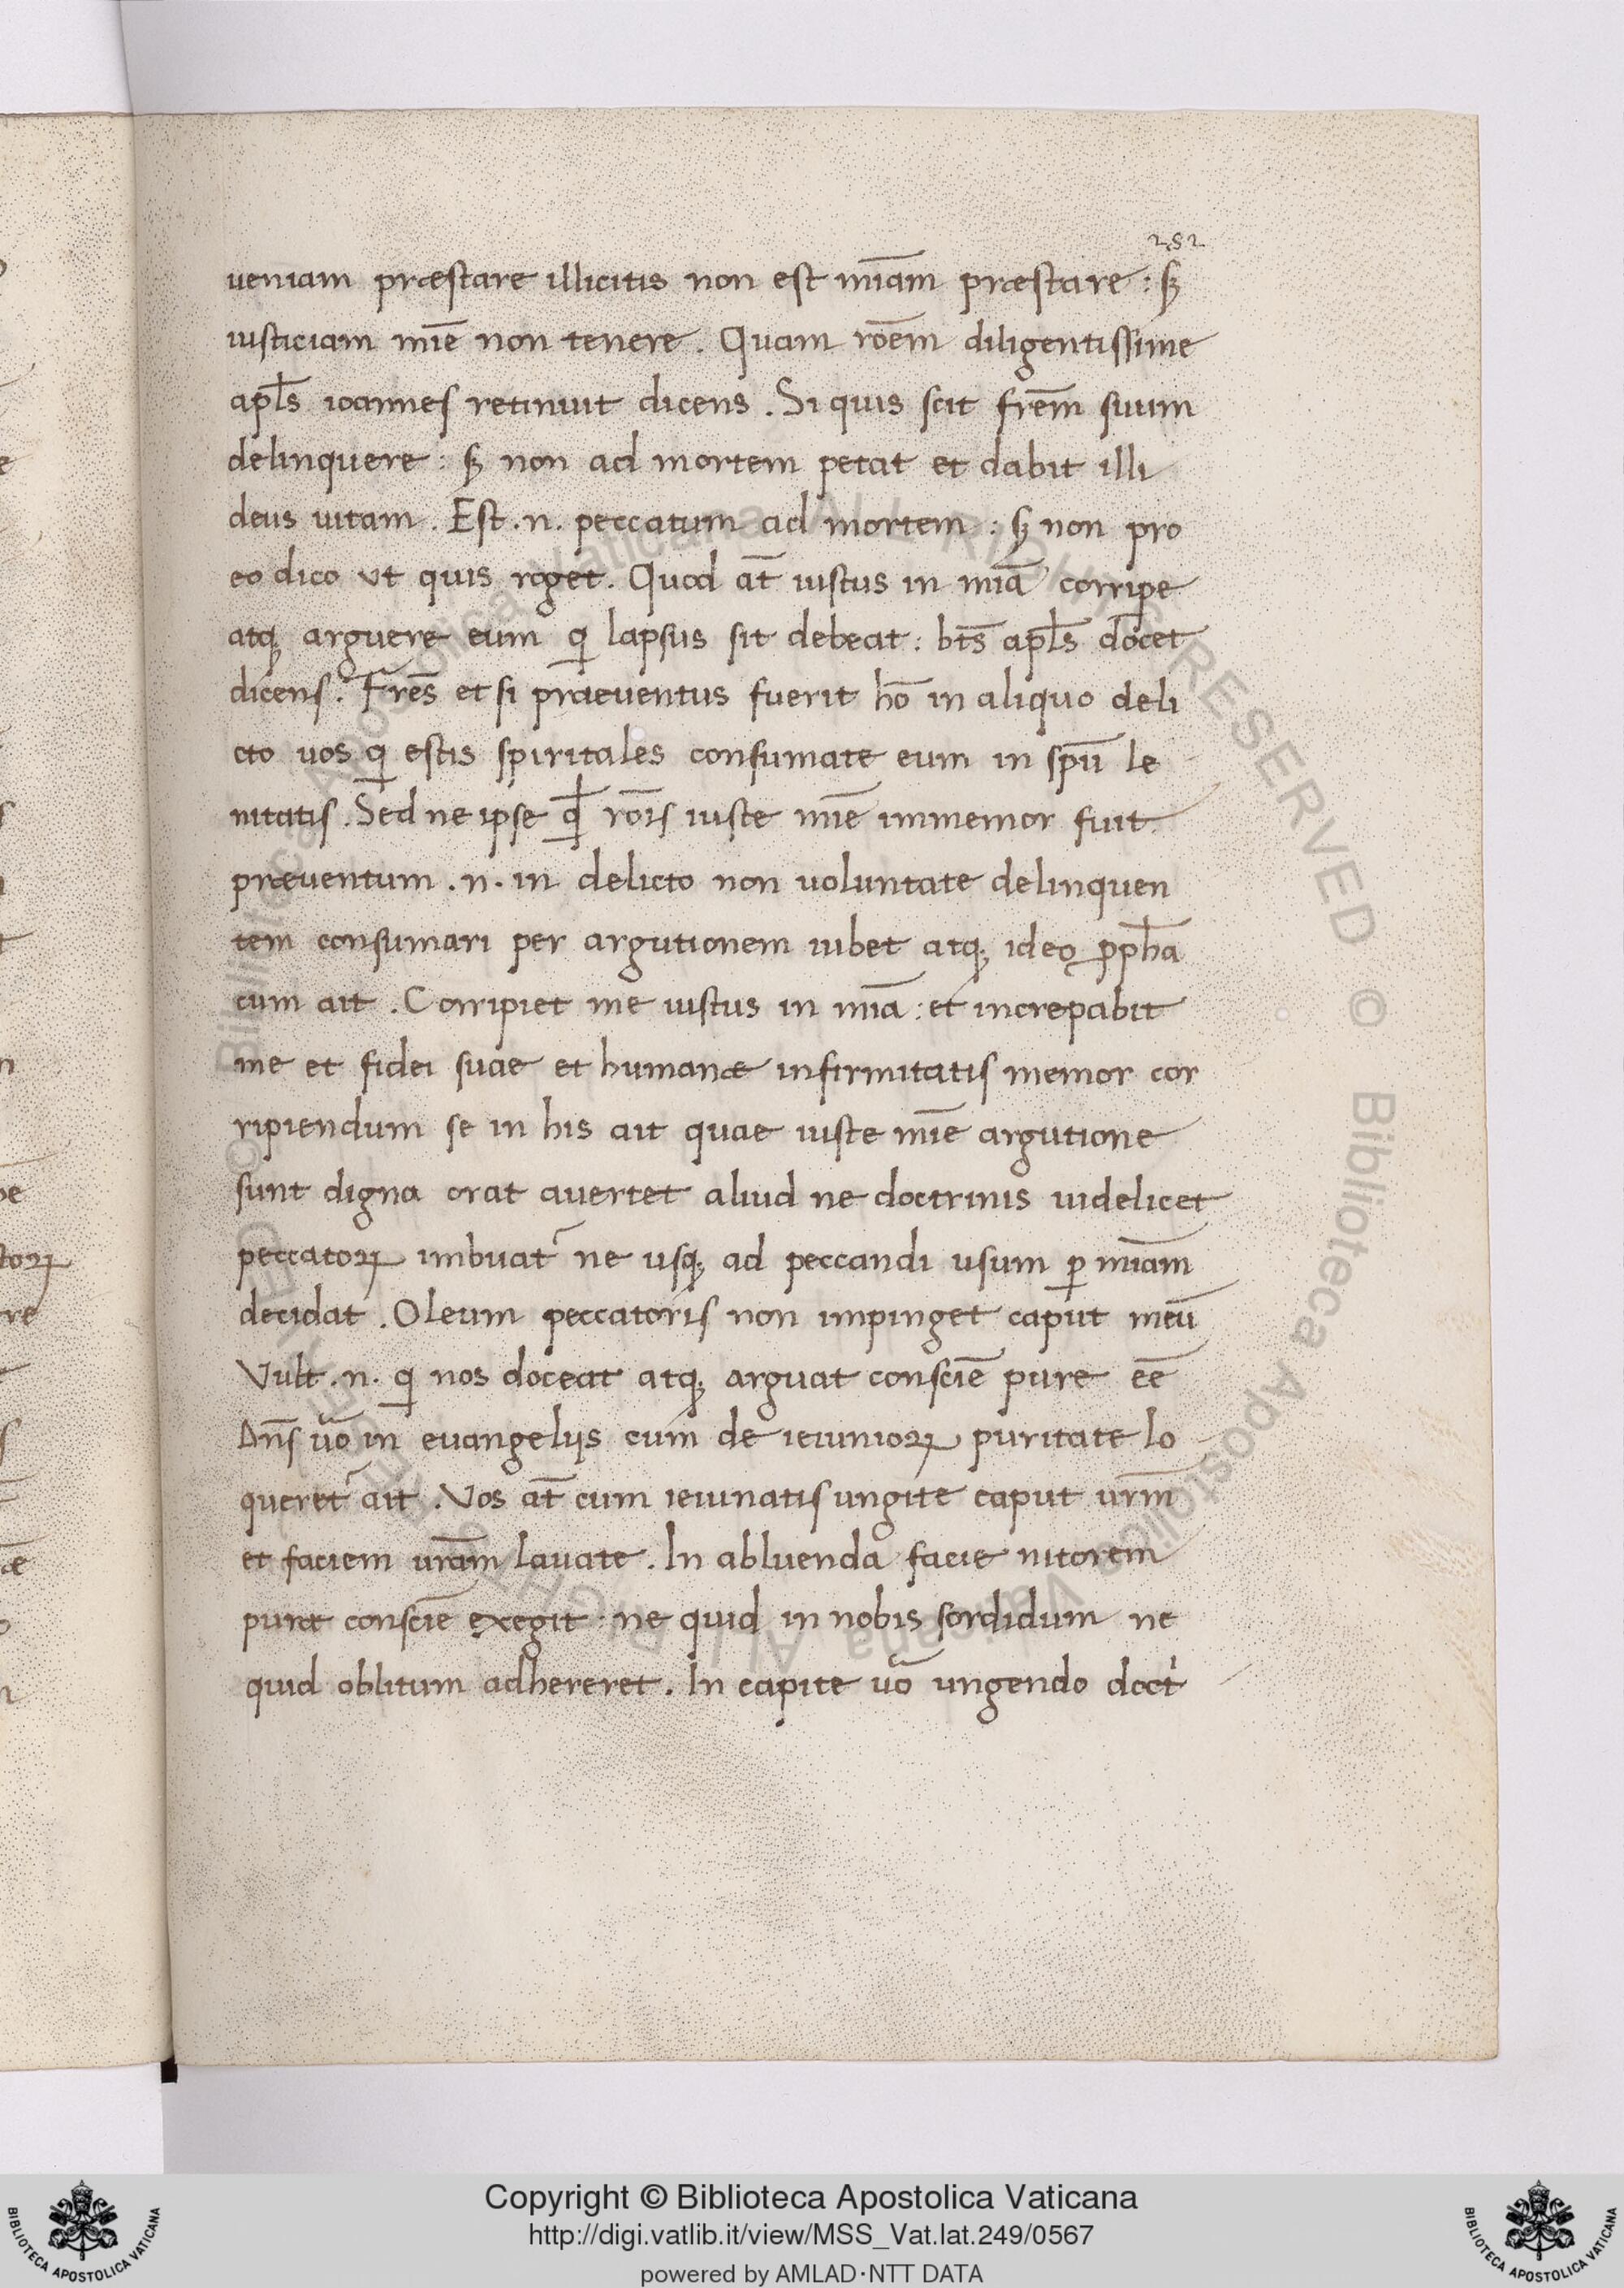 252
ueniam præstare illicitis non est miam̄ præstare : sʒ
iusticiam mīe non tenere . Quam rōem diligentissime
apl̄s ioannes retinuit dicens . Si quis scit frēm suum
delinquere : sʒ non ad mortem petat et dabit illi
deus uitam . Est .n. peccatum ad mortem : sʒ non pro
eo dico ut quis roget . Quod at̄ iustus in mīa corripe
atqꝫ arguere eum qi lapsus sit debeat : bt̄s apl̄s docet
dicens . Frēs et si praeuentus fuerit hō in aliquo deli
cto uos qi estis spiritales consumate eum in spū le
nitatis . Sed ne ipse ql̄ rōis iuste mīe immemor fuit
præuentum .n. in delicto non uoluntate delinquen
tem consumari per argutionem iubet atqꝫ ideo ꝓph̄a
cum ait . Corripiet me iustus in mīa : et increpabit
me et fidei suae et humanæ infirmitatis memor cor
ripiendum se in his ait quae iuste mīe argutione
sunt digna orat auertet aliud ne doctrinis uidelicet
peccatoꝝ imbuat᷑ ne usqꝫ ad peccandi usum ꝑ mīam
decidat . Oleum peccatoris non impinget caput meū
Vult .n. qi nos doceat atqꝫ arguat consciē pure eē
Dn̄s uō in euangelijs cum de ieiunioꝝ puritate lo
queret᷑ ait . Vos at̄ cum ieiunatis ungite caput ur̄m
et faciem urām lauate . In abluenda facie nitorem
puræ consciē exegit : ne quid in nobis sordidum ne
quid oblitum adhereret . In capite uō ungendo doct᷑
Copyright © Biblioteca Apostolica Vaticana
http://digi.vatlib.it/view/MSS_Vat.lat.249/0567
powered by AMLAD·NTT DATA